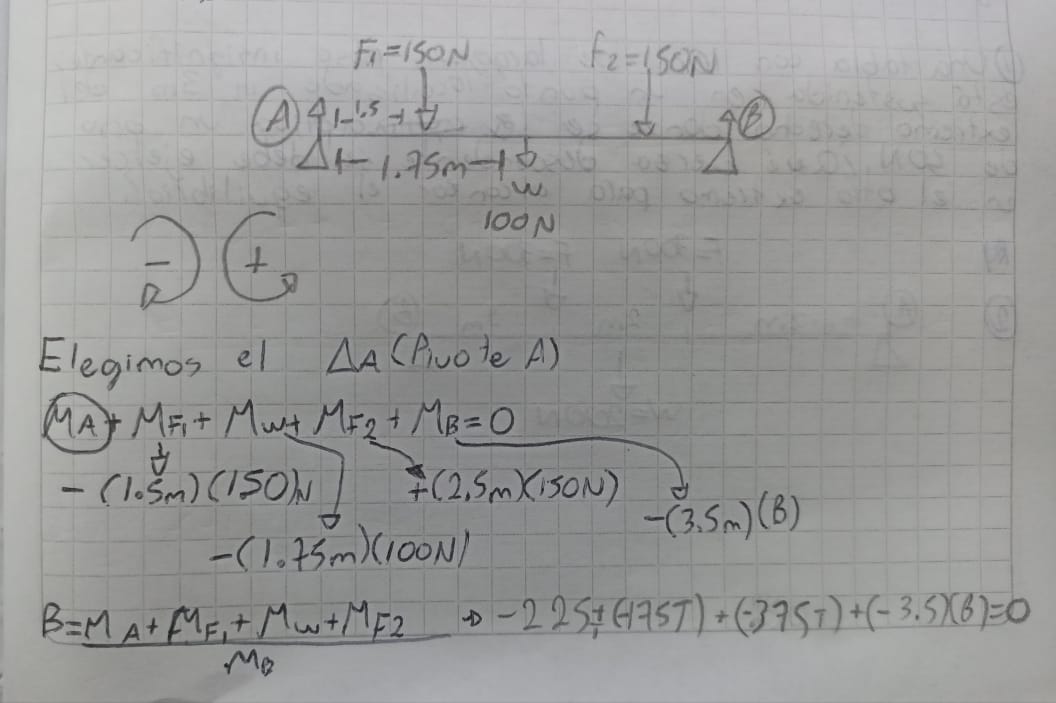 F₁=150N F₂=150N
A |-1.5-| B
|- 1.75m-|
w
100N
- +
Elegimos el ΔA (Pivote A)
MA + MF₁ + Mw + MF2 + MB = 0
- (1.5m)(150)N +(2,5m)(150N) -(3.5m)(B)
-(1.75m)(100N)
B = MA + MF₁ + Mw + MF2 → -225 + (-175T) + (-375T) + (-3.5)(B)=0
MB